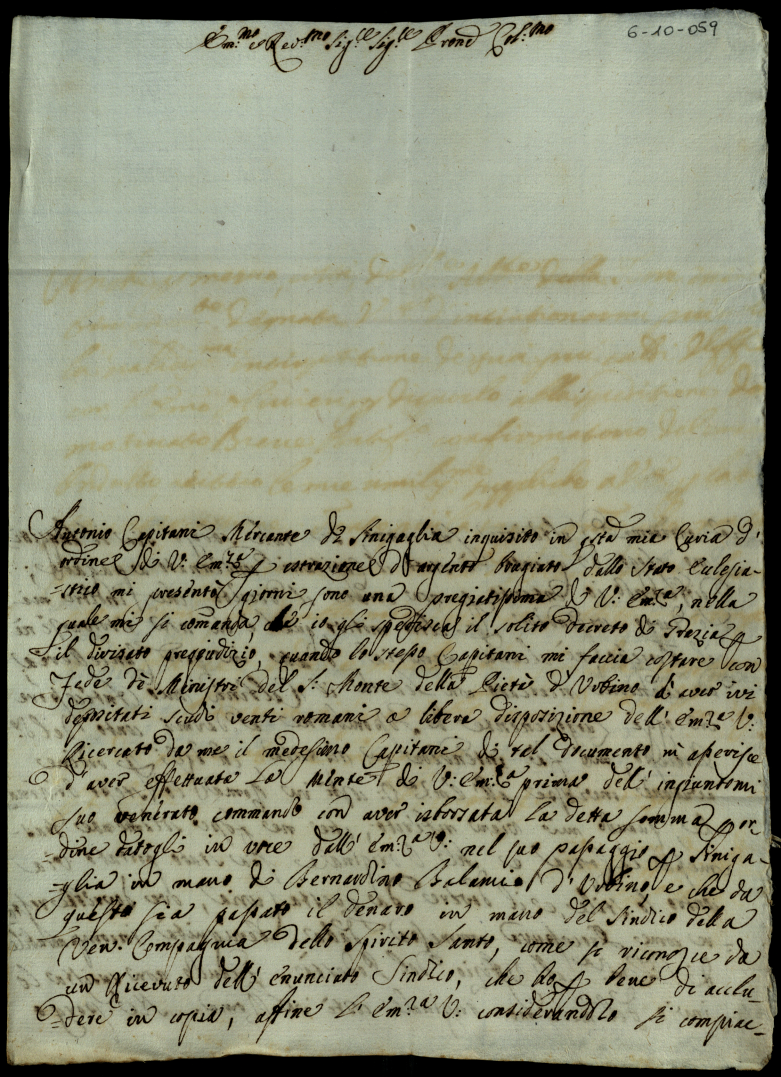 6-10-059
Em.mo e Rev.mo Sig.re Sig.re Pron.e Col.mo
Antonio Capitani Mercante di Sinigaglia inquisito in q.sta mia Curia d'
ordine di V: Em.za p estrazione d'argento brugiato dallo Stato Eclesia-
=stico mi presentò giorni sono una pregiatissima di V: Em.za, nella
quale mi si comanda, che io gli spedisca il solito decreto di Grazia p
il divisato preggiudizio, quando lo stesso Capitani mi faccia costare con
Fede de Ministri del S: Monte della Pietà d'Urbino d'aver ivi
depositati scudi venti romani a libera disposizione dell'Em.za V:
Ricercato da me il medesimo Capitani di tal documento m'asserisce
d'aver effettuata la Mente di V: Em.za prima dell'ingiuntomi
suo venerato commando con aver isborzata la detta somma p or-
=dine datogli in voce dall'Em.za V: nel suo passaggio p Siniga-
=glia in mano di Bernardino Balamio d'Urbino, e che da
questo sia passato il denaro in mano del Sindico della
Ven: Compagnia dello Spirito Santo, come si riconosce da
un Ricevuto dell'enunciato Sindico, che hò p bene di acclu-
=dere in copia, affine l'Em.za V: considerandolo si compiac-